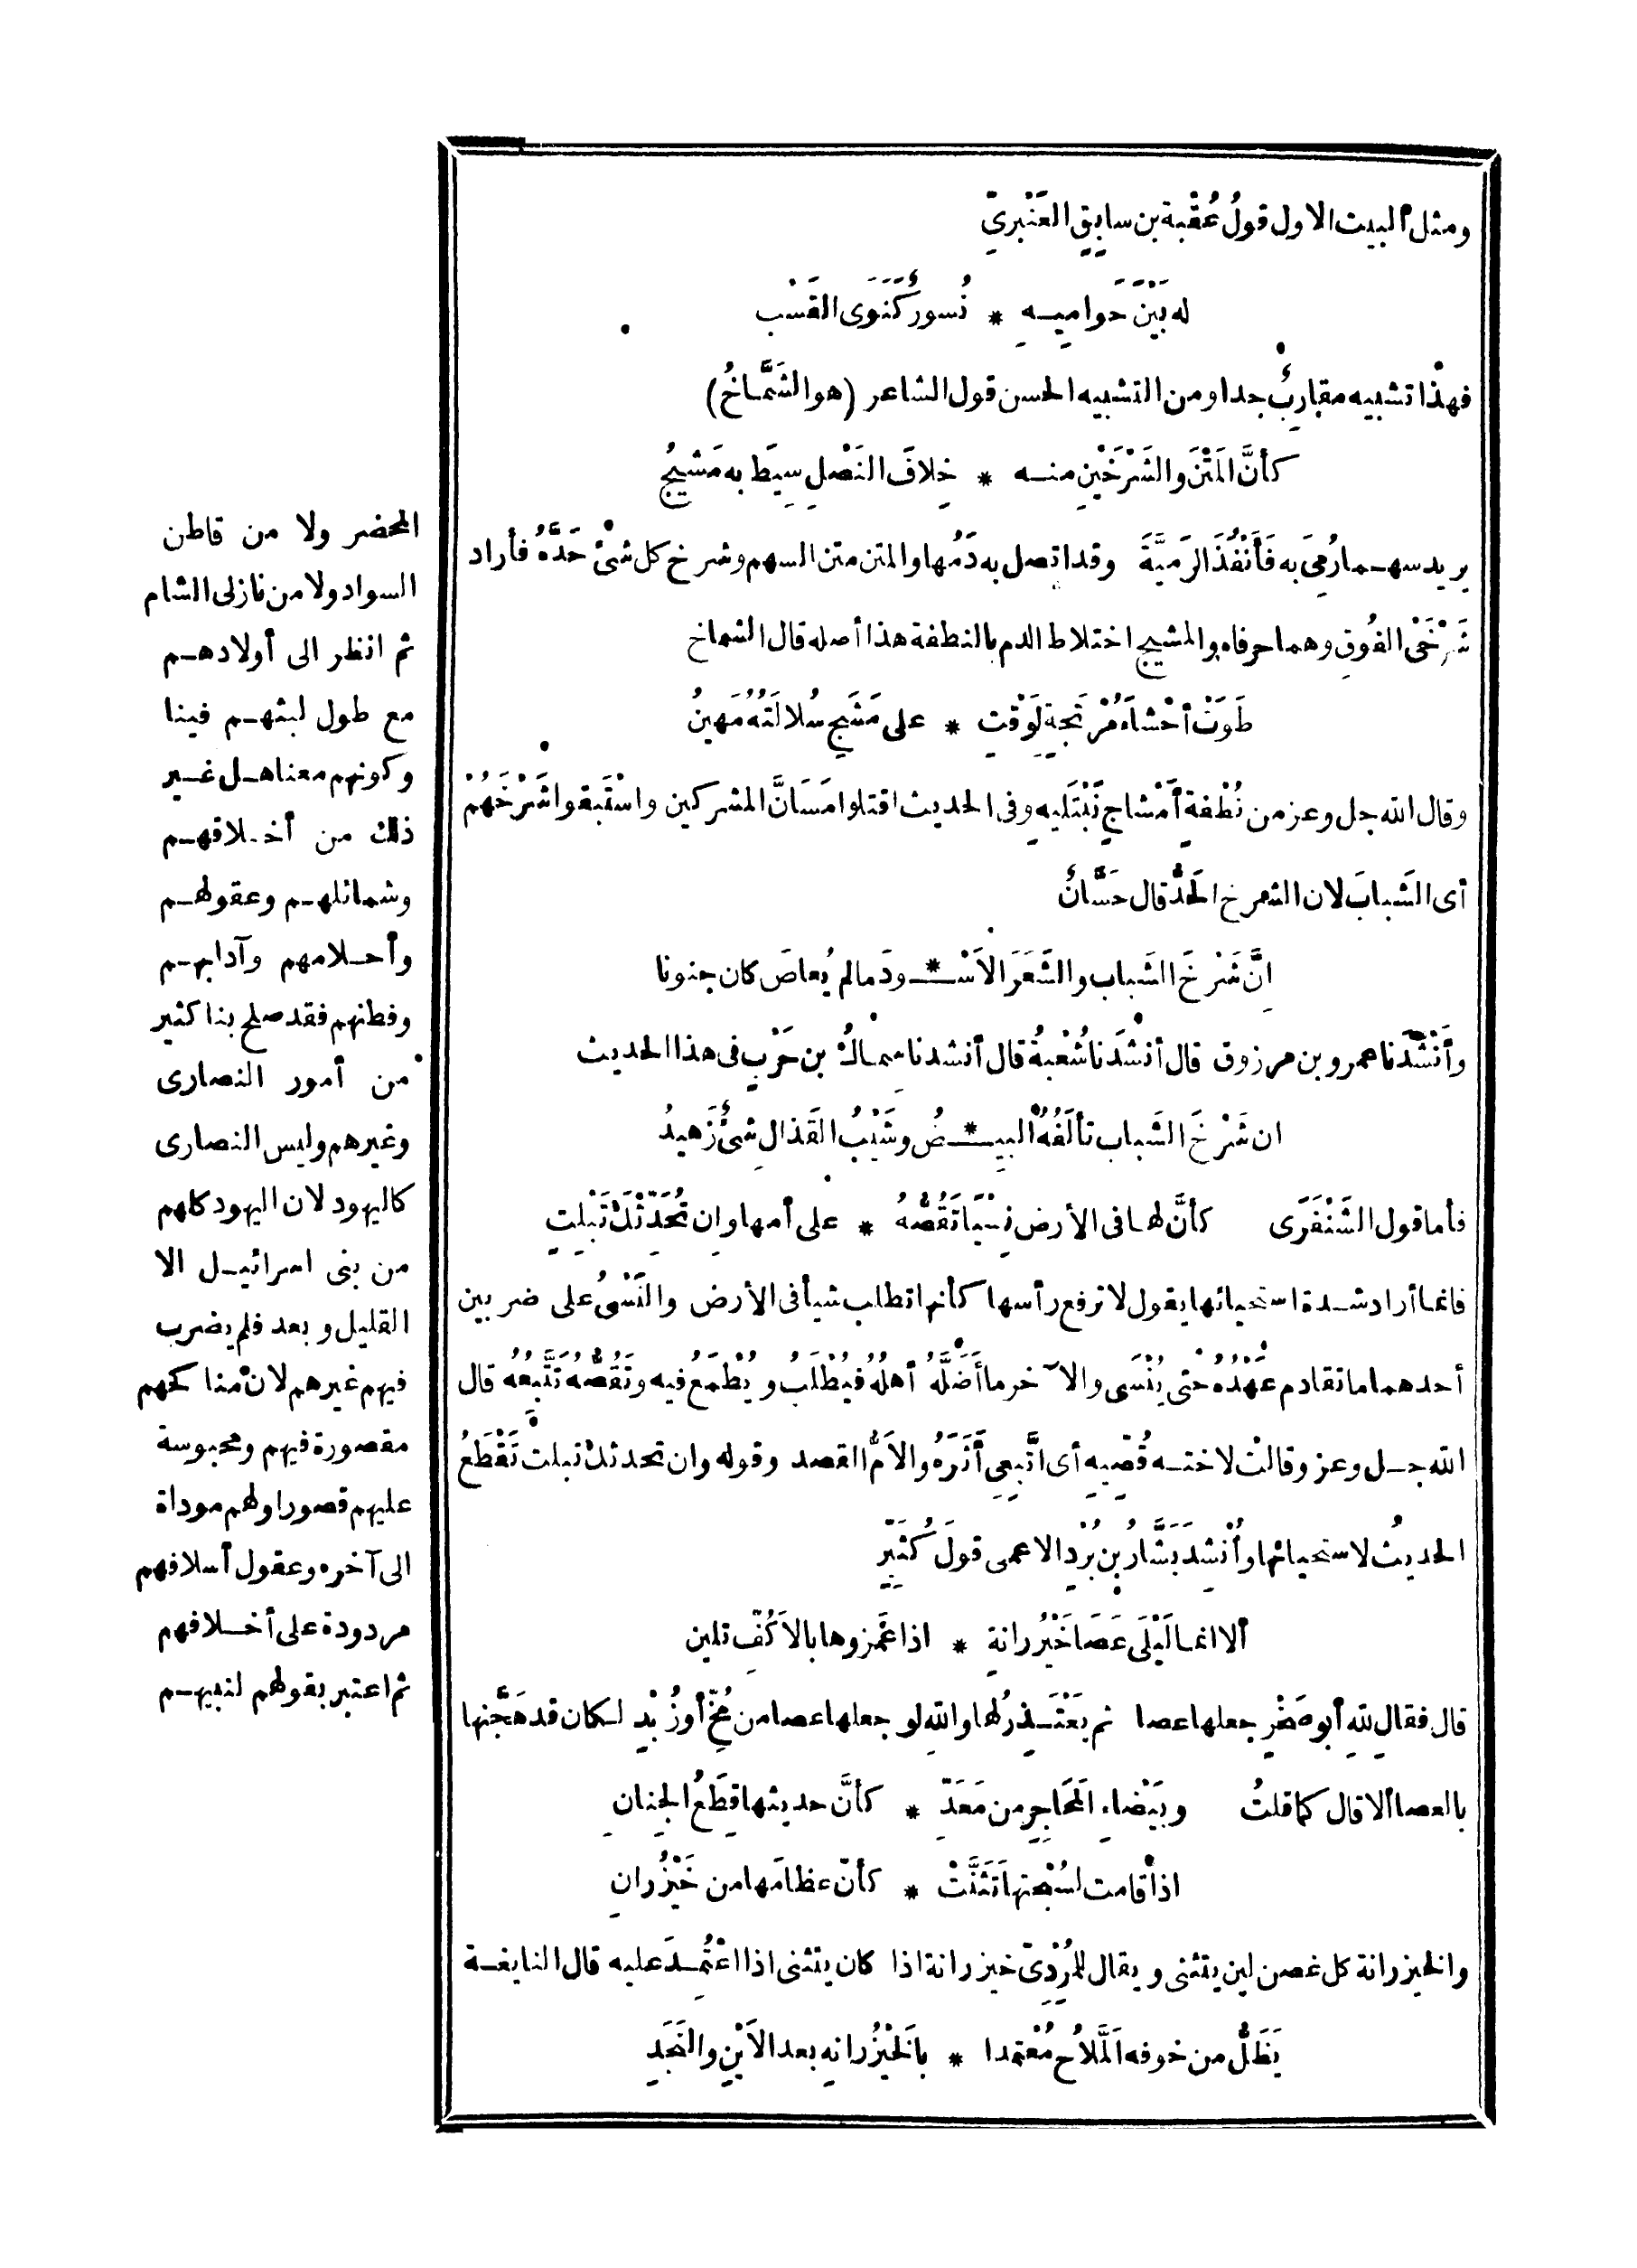 ومثل البيت الاول قولُ عُقْبة بن سابِقٍ العَنْبرىّ
له بَيْنَ حَوامِيــهِ * نُسورٌ كَنَوَى القَسْب
فهذا تشبيه مقارِبٌ جدا ومن التشبيه الحسن قول الشاعر (هو الشَمَّاخُ)
كأنَّ المَتْنَ والشَرْخَيْنِ منــه * خِلافَ النَصْلِ سِيَط به مَشيجُ
يريد سهــما رُمِىَ به فَأَنْفُذَ الرَمِيَّةَ وقد اتصل به دَمُها والمتن متن السهم وشرخ كل شئْ حَدَّهُ فأراد
شَرْخَىْ الفُوقِ وهما حرفاه والمشيج اختلاط الدم بالنطفة هذا أصله قال الشماخ
طَوَتْ أَحْشاءَ مُرْتِجةٍ لِوَقْتٍ * على مَشَجٍ سُلالَتُهُ مَهِينُ
وقال الله جل وعز من نُطْفةٍ أَمْشاجٍ نَبْتَليه وفى الحديث اقتلوا مَسَانَّ المشركين واسْتَبقوا شَرْخَهُمْ
أى الشَبابَ لان الشرخ الحَدُّ قال حَسَّانُ
اِنَّ شَرْخَ الشَباب والشَّعَرَ الاَسْـ * ـودَ مالم يُعاصَ كان جنونا
وأَنْشَدَنا عمرو بن مرزوق قال أنشَدَنا شُعْبةُ قال أنشدنا سِماكُ بن حَرْبٍ فى هذا الحديث
ان شَرْخَ الشَباب تألَفُهُ البيـ * ـضُ وشَيْبُ القَذالِ شىْءٌ زَهيدُ
فأما قول الشَنْفَرَى كأنَّ لها فى الأرض نِسْيًا تَقُصُّهُ * على أمها وان تُحَدِّثْكَ تَبْلِتِ
فانما أراد شــدة استحيائها يقول لا ترفع رأسها كأنها تطلب شيأ فى الأرض والنَسْىُ على ضربين
أحدهما ما تقادم عَهْدُهُ حتى يُنْسَى والآخر ما أَضَلَّهُ أهلُهُ فيُطْلَبُ ويُطْمَعُ فيه وتَقُصُّهُ تَتَّبِعُهُ قال
الله جــل وعز وقالتْ لاختــه قُصِّيهِ أى اتَّبِعِى أَثَرَهُ والاَمُّ القصد وقوله وان تحدثك تبلت تَقْطَعُ
الحديثُ لاستحيائها وأُنْشِدَ بَشَّارُ بن بُرْدٍ الاعمى قولَ كُثَيِّرٍ
ألا انما لَيْلَى عَصَا خَيْزُرانةٍ * اذا غَمزوها بالاَكُفِّ تلين
قال فقال لِلهِ أبو صَخْرٍ جعلها عصا ثم يَعْتَــذِرُ لها والله لو جعلها عصا من مُخٍّ أو زُبْدٍ لكان قد هَجَّنها
بالعصا ألا قال كما قلتُ وبَيْضاءِ المَحَاجِرِ من مَعَدٍّ * كأنَّ حديثها قِطَعُ الجِنانِ
اذا قامت لسُبْحتها تَثَنَّتْ * كأنّ عظامَها من خَيْزُرانِ
والخيزرانة كل غصن لين يتثنى ويقال للمُرْدِىّ خيزرانة اذا كان يتثنى اذا اعْتُمِــدَ عليه قال النابغــة
يَظَلُّ من خوفه المَلَّاحُ مُعْتَمدا * بالخَيْزُرانةِ بعد الاَيْنِ والنَجَدِ
المحضر ولا من قاطن
السواد ولا من نازلى الشام
ثم انظر الى أولادهــم
مع طول لبثهــم فينا
وكونهم معنا هــل غــير
ذلك من أخــلاقهــم
وشمائلهــم وعقولهــم
وأحــلامهم وآدابهــم
وفطنهم فقد صلح بنا كثير
من أمور النصارى
وغيرهم وليس النصارى
كاليهود لان اليهود كلهم
من بنى اسرائيــل الا
القليل وبعد فلم يضرب
فيهم غيرهم لان مناكحهم
مقصورة فيهم ومحبوسة
عليهم قصورا ولهم موداة
الى آخره وعقول أسلافهم
مردودة على أخــلافهم
ثم اعتبر بقولهم لنبيهــم